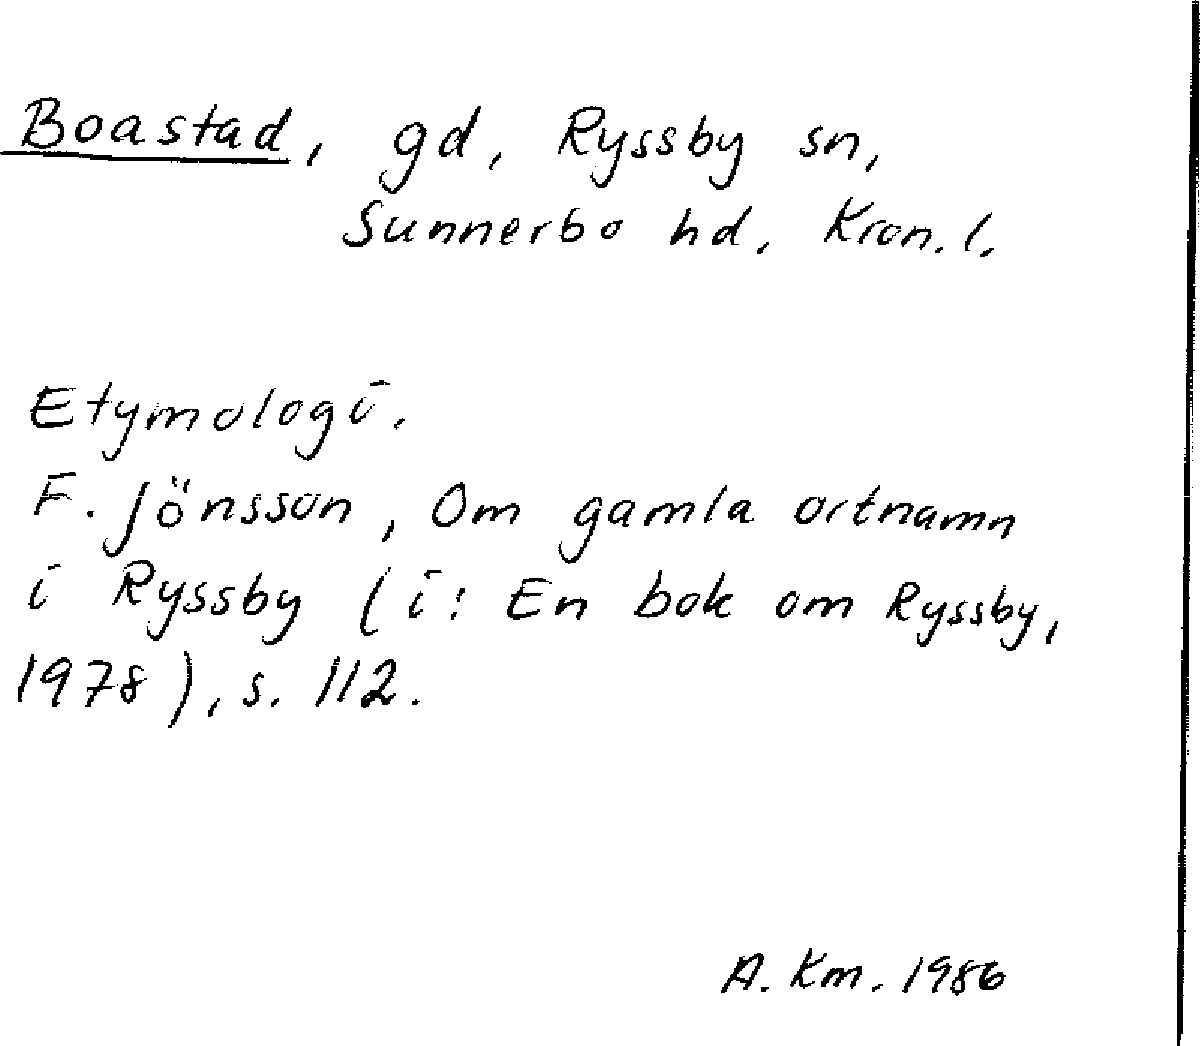 Boastad, gd, Ryssby sn,
Sunnerbo hd, Kron. l.
Etymologi.
F. Jönsson, Om gamla ortnamn
i Ryssby (i: En bok om Ryssby,
1978), s. 112.
A. Km. 1986